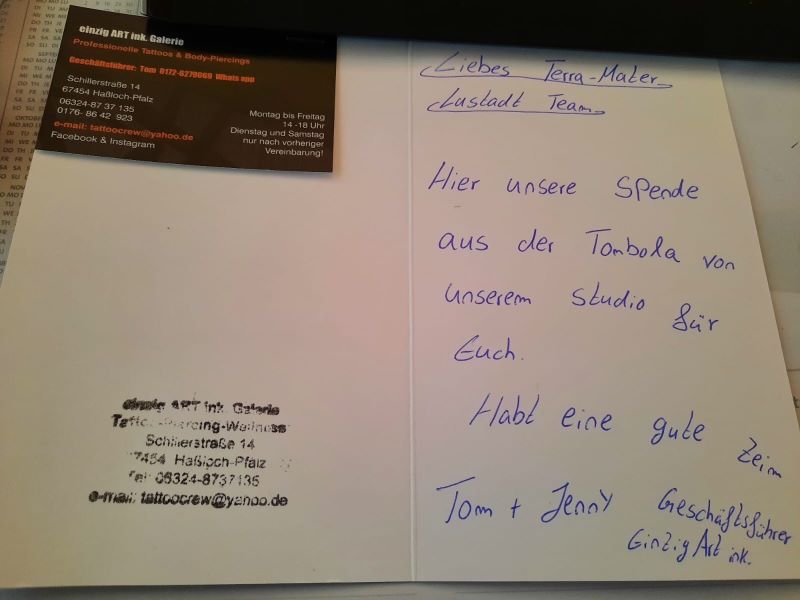 einzig ART ink. Galerie
Professionelle Tattoos & Body-Piercings
Geschäftsführer: Tom 0172-6279669 Whats app
Schillerstraße 14
67454 Haßloch-Pfalz
06324-87 37 135
0176- 86 42 923
e-mail: tattoocrew@yahoo.de
Facebook & Instagram
Montag bis Freitag
14 -18 Uhr
Dienstag und Samstag
nur nach vorheriger
Vereinbarung!
Liebes Terra-Mater
Lustadt Team
Hier unsere Spende
aus der Tombola von
unserem Studio für
Euch.
Habt eine gute
Tom + Jenny Geschäftsführer
Einzig Art ink.
einzig ART ink. Galerie
Schillerstraße 14
Haßloch-Pfalz
Tel: 06324-8737135
e-mail: tattoocrew@yahoo.de